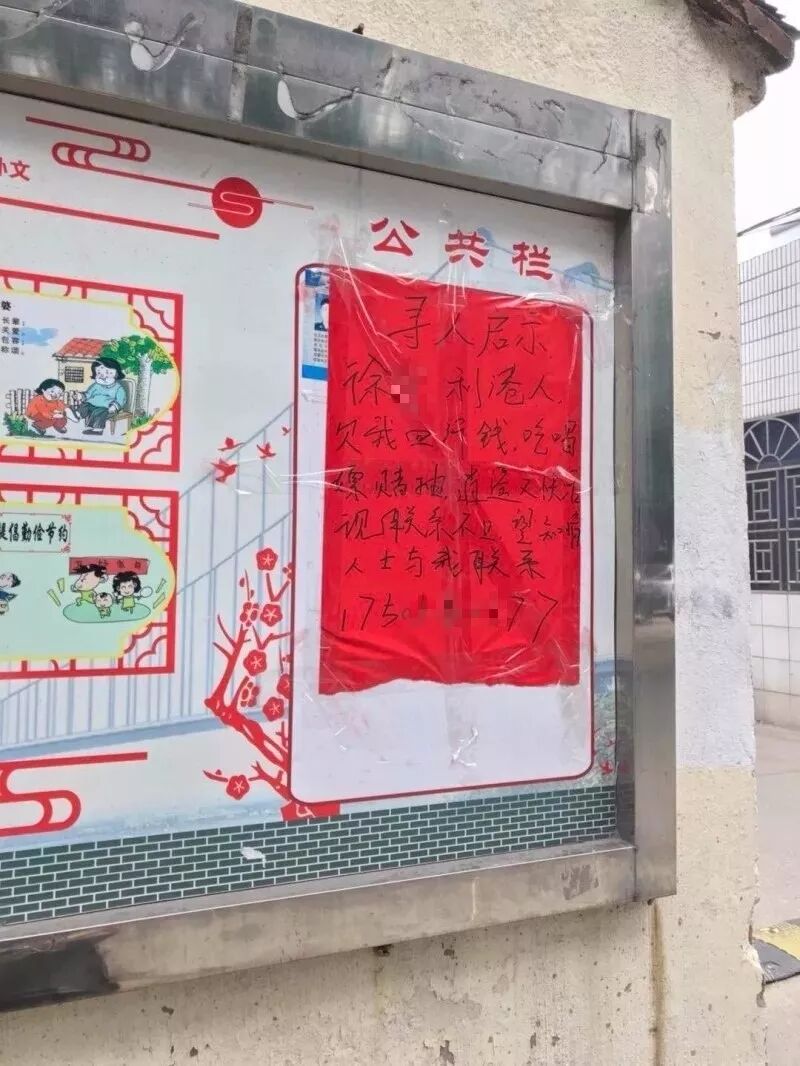 公共栏
寻人启示
徐 利港人
欠我四仟钱.吃喝
嫖赌抽逍遥又快活
现联系不上,望知情
人士与我联系
175 77
孙文
婆
长辈:
关爱
包容
称颂.
提倡勤俭节约